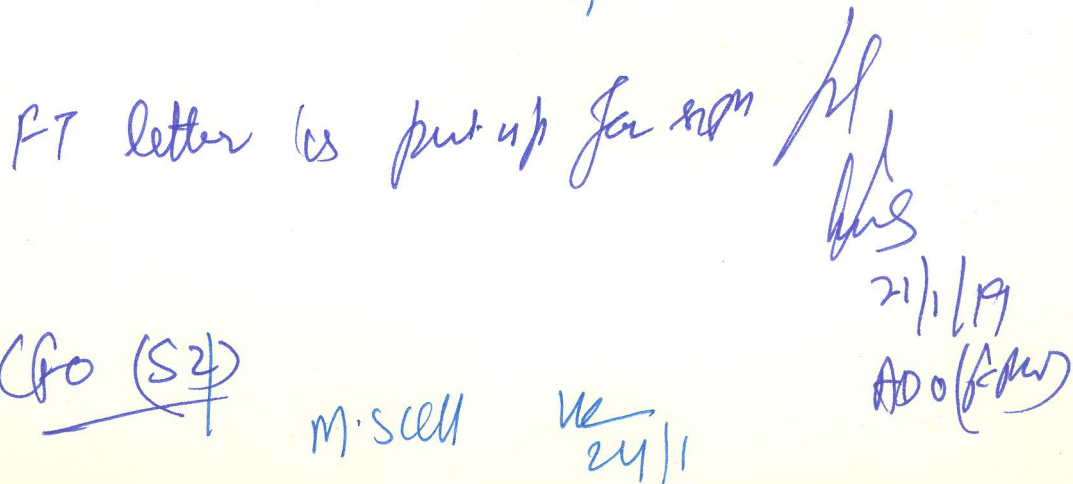 FT letter is put up for sign pl.
21/1/19
ADO (
CFO (SZ)
M.S Cell
24/1